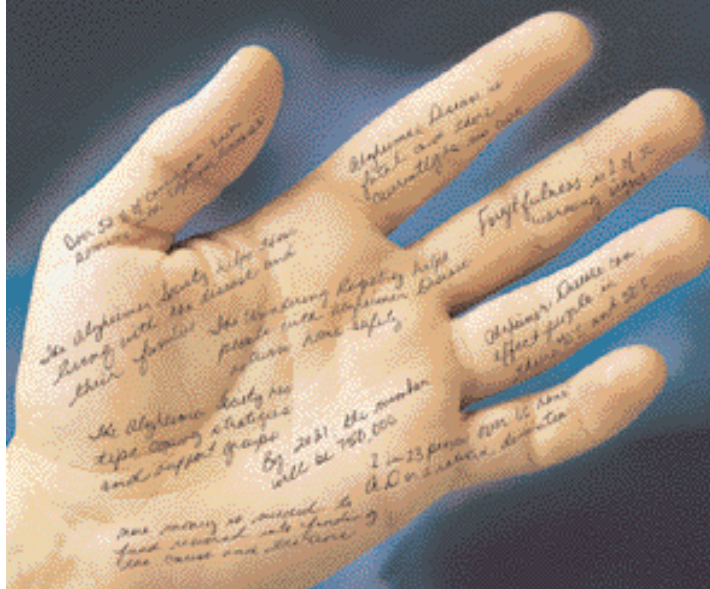 Over 50% of Canadians know
someone with Alzheimer Disease
Alzheimer Disease is
fatal and there
currently is no cure
Forgetfulness is 1 of
warning signs
Alzheimer Disease can
effect people in
their 40's and 50's
1 in 13 people over 65 have
A.D or a related dementia
The Alzheimer Society helps those
living with the disease and
their families
The Wandering Registry helps
people with Alzheimer Disease
return home safely
The Alzheimer Society has
tips coping strategies
and support groups
By 2031 the number
will be 750,000
more money is needed to
fund research into finding
the cause and the cure